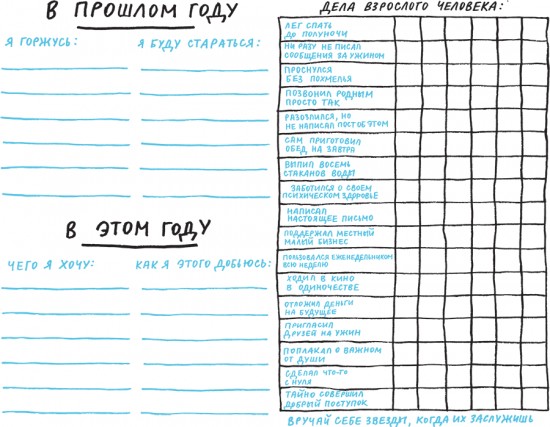 В ПРОШЛОМ ГОДУ
Я ГОРЖУСЬ:
Я БУДУ СТАРАТЬСЯ:
В ЭТОМ ГОДУ
ЧЕГО Я ХОЧУ:
КАК Я ЭТОГО ДОБЬЮСЬ:
ДЕЛА ВЗРОСЛОГО ЧЕЛОВЕКА:
ЛЕГ СПАТЬ
ДО ПОЛУНОЧИ
НИ РАЗУ НЕ ПИСАЛ
СООБЩЕНИЯ ЗА УЖИНОМ
ПРОСНУЛСЯ
БЕЗ ПОХМЕЛЬЯ
ПОЗВОНИЛ РОДНЫМ
ПРОСТО ТАК
РАЗОЗЛИЛСЯ, НО
НЕ НАПИСАЛ ПОСТ ОБ ЭТОМ
САМ ПРИГОТОВИЛ
ОБЕД НА ЗАВТРА
ВЫПИЛ ВОСЕМЬ
СТАКАНОВ ВОДЫ
ЗАБОТИЛСЯ О СВОЕМ
ПСИХИЧЕСКОМ ЗДОРОВЬЕ
НАПИСАЛ
НАСТОЯЩЕЕ ПИСЬМО
ПОДДЕРЖАЛ МЕСТНЫЙ
МАЛЫЙ БИЗНЕС
ПОЛЬЗОВАЛСЯ ЕЖЕНЕДЕЛЬНИКОМ
ВСЮ НЕДЕЛЮ
ХОДИЛ В КИНО
В ОДИНОЧЕСТВЕ
ОТЛОЖИЛ ДЕНЬГИ
НА БУДУЩЕЕ
ПРИГЛАСИЛ
ДРУЗЕЙ НА УЖИН
ПОПЛАКАЛ О ВАЖНОМ
ОТ ДУШИ
СДЕЛАЛ ЧТО-ТО
С НУЛЯ
ТАЙНО СОВЕРШИЛ
ДОБРЫЙ ПОСТУПОК
ВРУЧАЙ СЕБЕ ЗВЕЗДЫ, КОГДА ИХ ЗАСЛУЖИШЬ